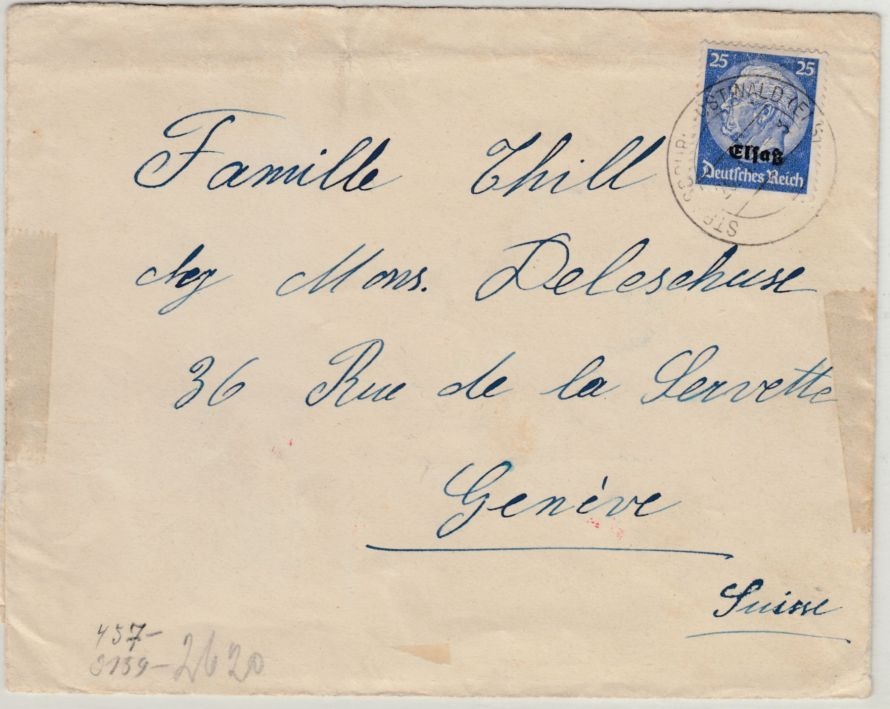 25 25
Elsaß
Deutsches Reich
OSTWALD (ELS)
Famille Thill
chez Mons. Deleschuse
36 Rue de la Servette
Genève
Suisse
457-
2620